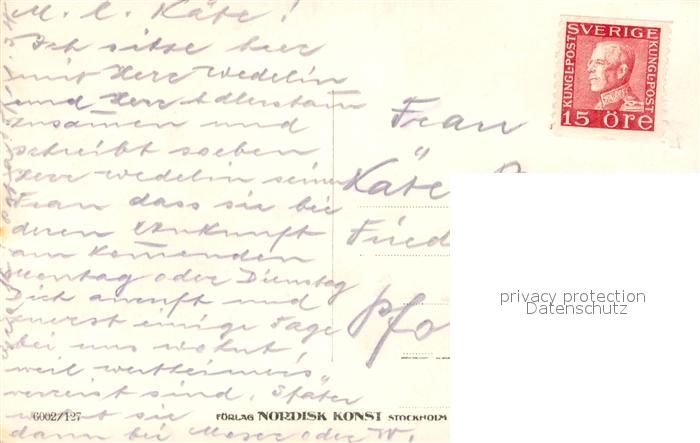 M. l. Käte!
Ich sitze hier
mit Herr Wedelin
und Herr Adlerstam
zusammen und
schreibt soeben
Herr Wedelin seiner
Frau dass sie bei
deren Ankunft
am Komenden
Montag oder Dienstag
Dich anruft und
zuerst einige Tage
bei uns wohnt
weil Wertheimers
verreist sind. Später
wohnt sie
dann bei Moser oder W.
Frau
Käte
Fried
Pfo
KUNGL·POST
SVERIGE
KUNGL·POST
15 öre
privacy protection
Datenschutz
6002/127
FÖRLAG NORDISK KONST STOCKHOLM